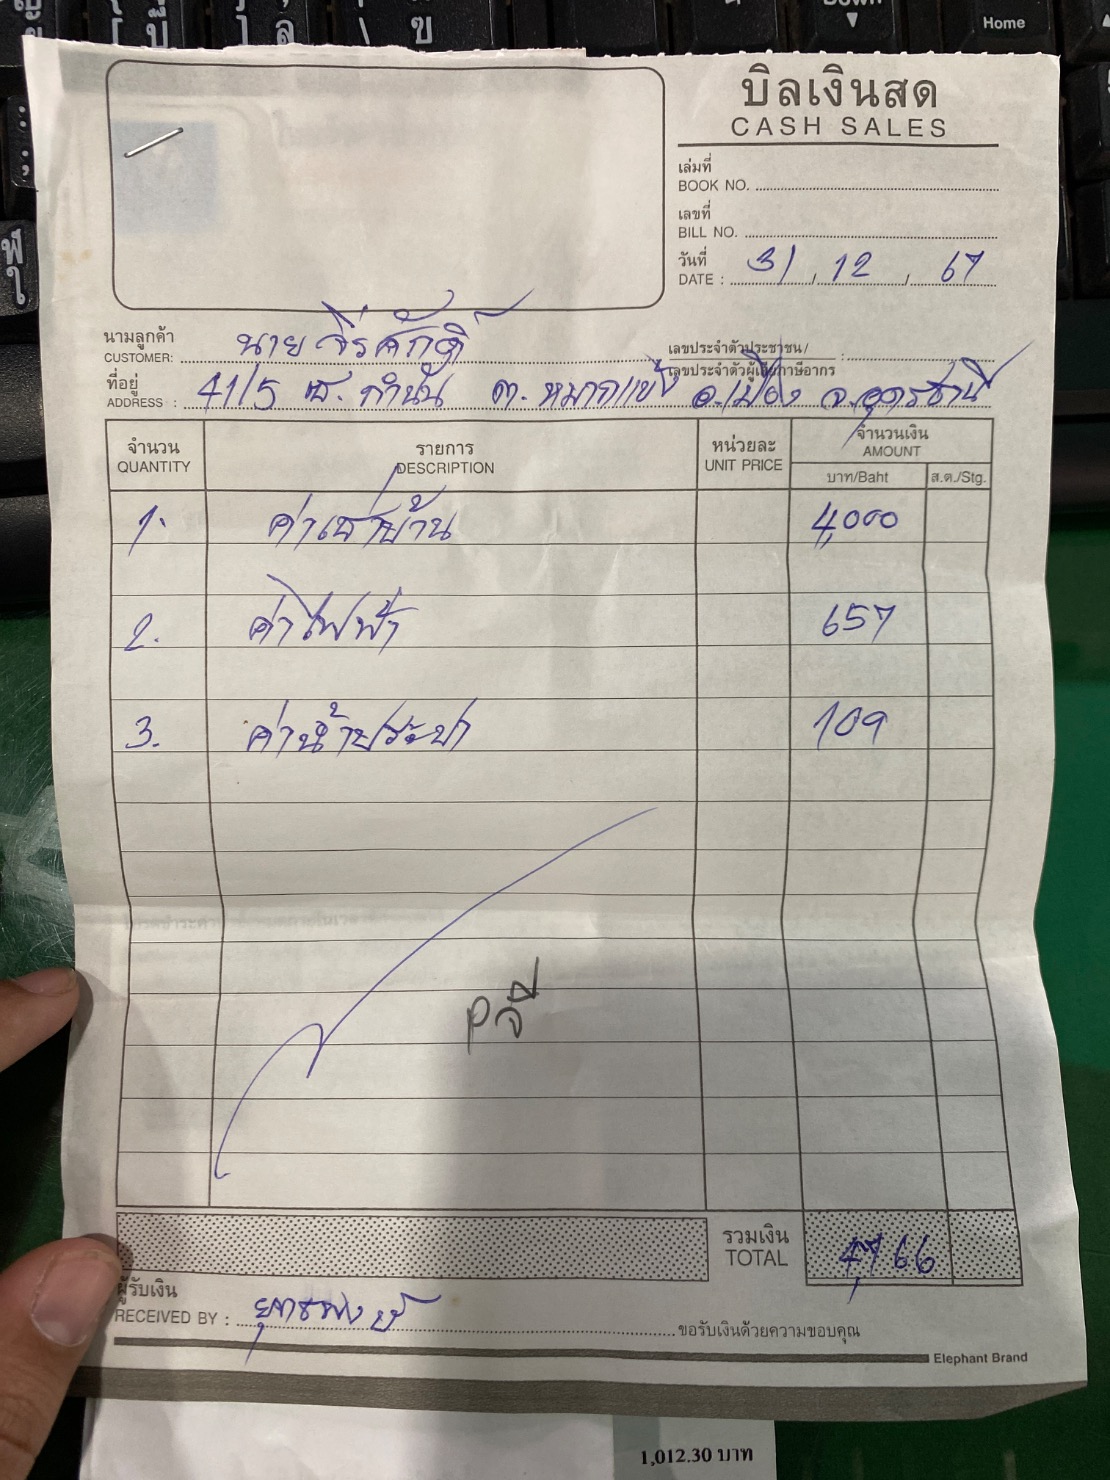 บิลเงินสด
CASH SALES
เล่มที่
BOOK NO.
เลขที่
BILL NO.
วันที่
DATE : 31 / 12 / 67
นามลูกค้า
CUSTOMER: นาย จิรศักดิ์
เลขประจำตัวประชาชน/
เลขประจำตัวผู้เสียภาษีอากร :
ที่อยู่
ADDRESS : 41/5 ซ. กำนัน ต.หมากแข้ง อ.เมือง จ.อุดรธานี
จำนวน รายการ หน่วยละ จำนวนเงิน
QUANTITY DESCRIPTION UNIT PRICE AMOUNT
บาท/Baht ส.ต./Stg.
1. ค่าเช่าบ้าน 4,000
2. ค่าไฟฟ้า 657
3. ค่าน้ำประปา 109
รวมเงิน
TOTAL 4,766
ผู้รับเงิน
RECEIVED BY : ยุทธพงษ์ ขอรับเงินด้วยความขอบคุณ
Elephant Brand
1,012.30 บาท
Home